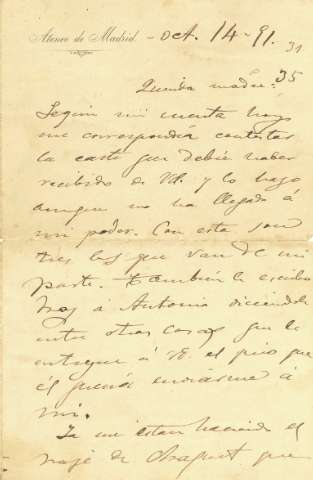 Ateneo de Madrid. - Oct. 14-91.
31
35
Querida madre:
Según mi cuenta hoy
me correspondía contestar
la carta que debía haber
recibido de Vd. y lo hago
aunque no ha llegado á
mi poder. Con esta son
tres las que van de mi
parte. También le escribo
hoy á Antonio diciendole
entre otras cosas que le
entregue á Vd. el giro que
él quería enviarme á
mi.
Ya me están haciendo el
traje de chaquet que